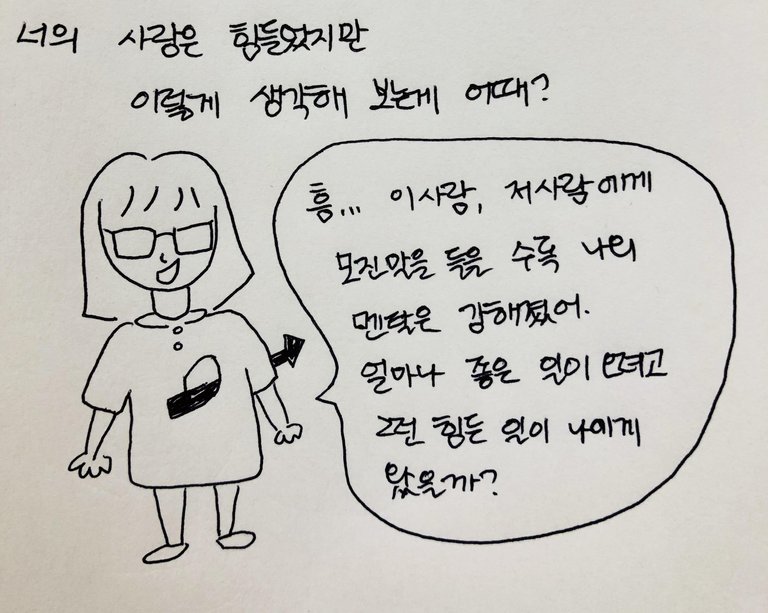 너의 사랑은 힘들었지만
이렇게 생각해 보는게 어때?
흠... 이사람, 저사람에게
모진말을 들을 수록 나의
멘탈은 강해졌어.
얼마나 좋은 일이 오려고
그런 힘든 일이 나에게
왔을까?